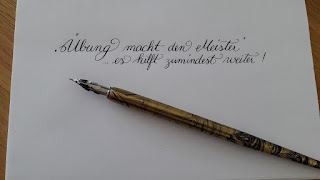 "Übung macht den Meister"
...es hilft zumindest weiter!